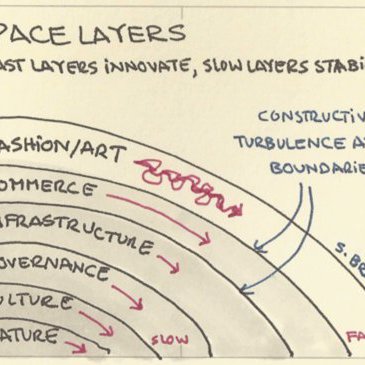 PACE LAYERS
AST LAYERS INNOVATE, SLOW LAYERS STABI
CONSTRUCTIV
TURBULENCE A
BOUNDARIE
ASHION/ART
OMMERCE
NFRASTRUCTURE
OVERNANCE
ULTURE
ATURE
SLOW
FA
S. BR